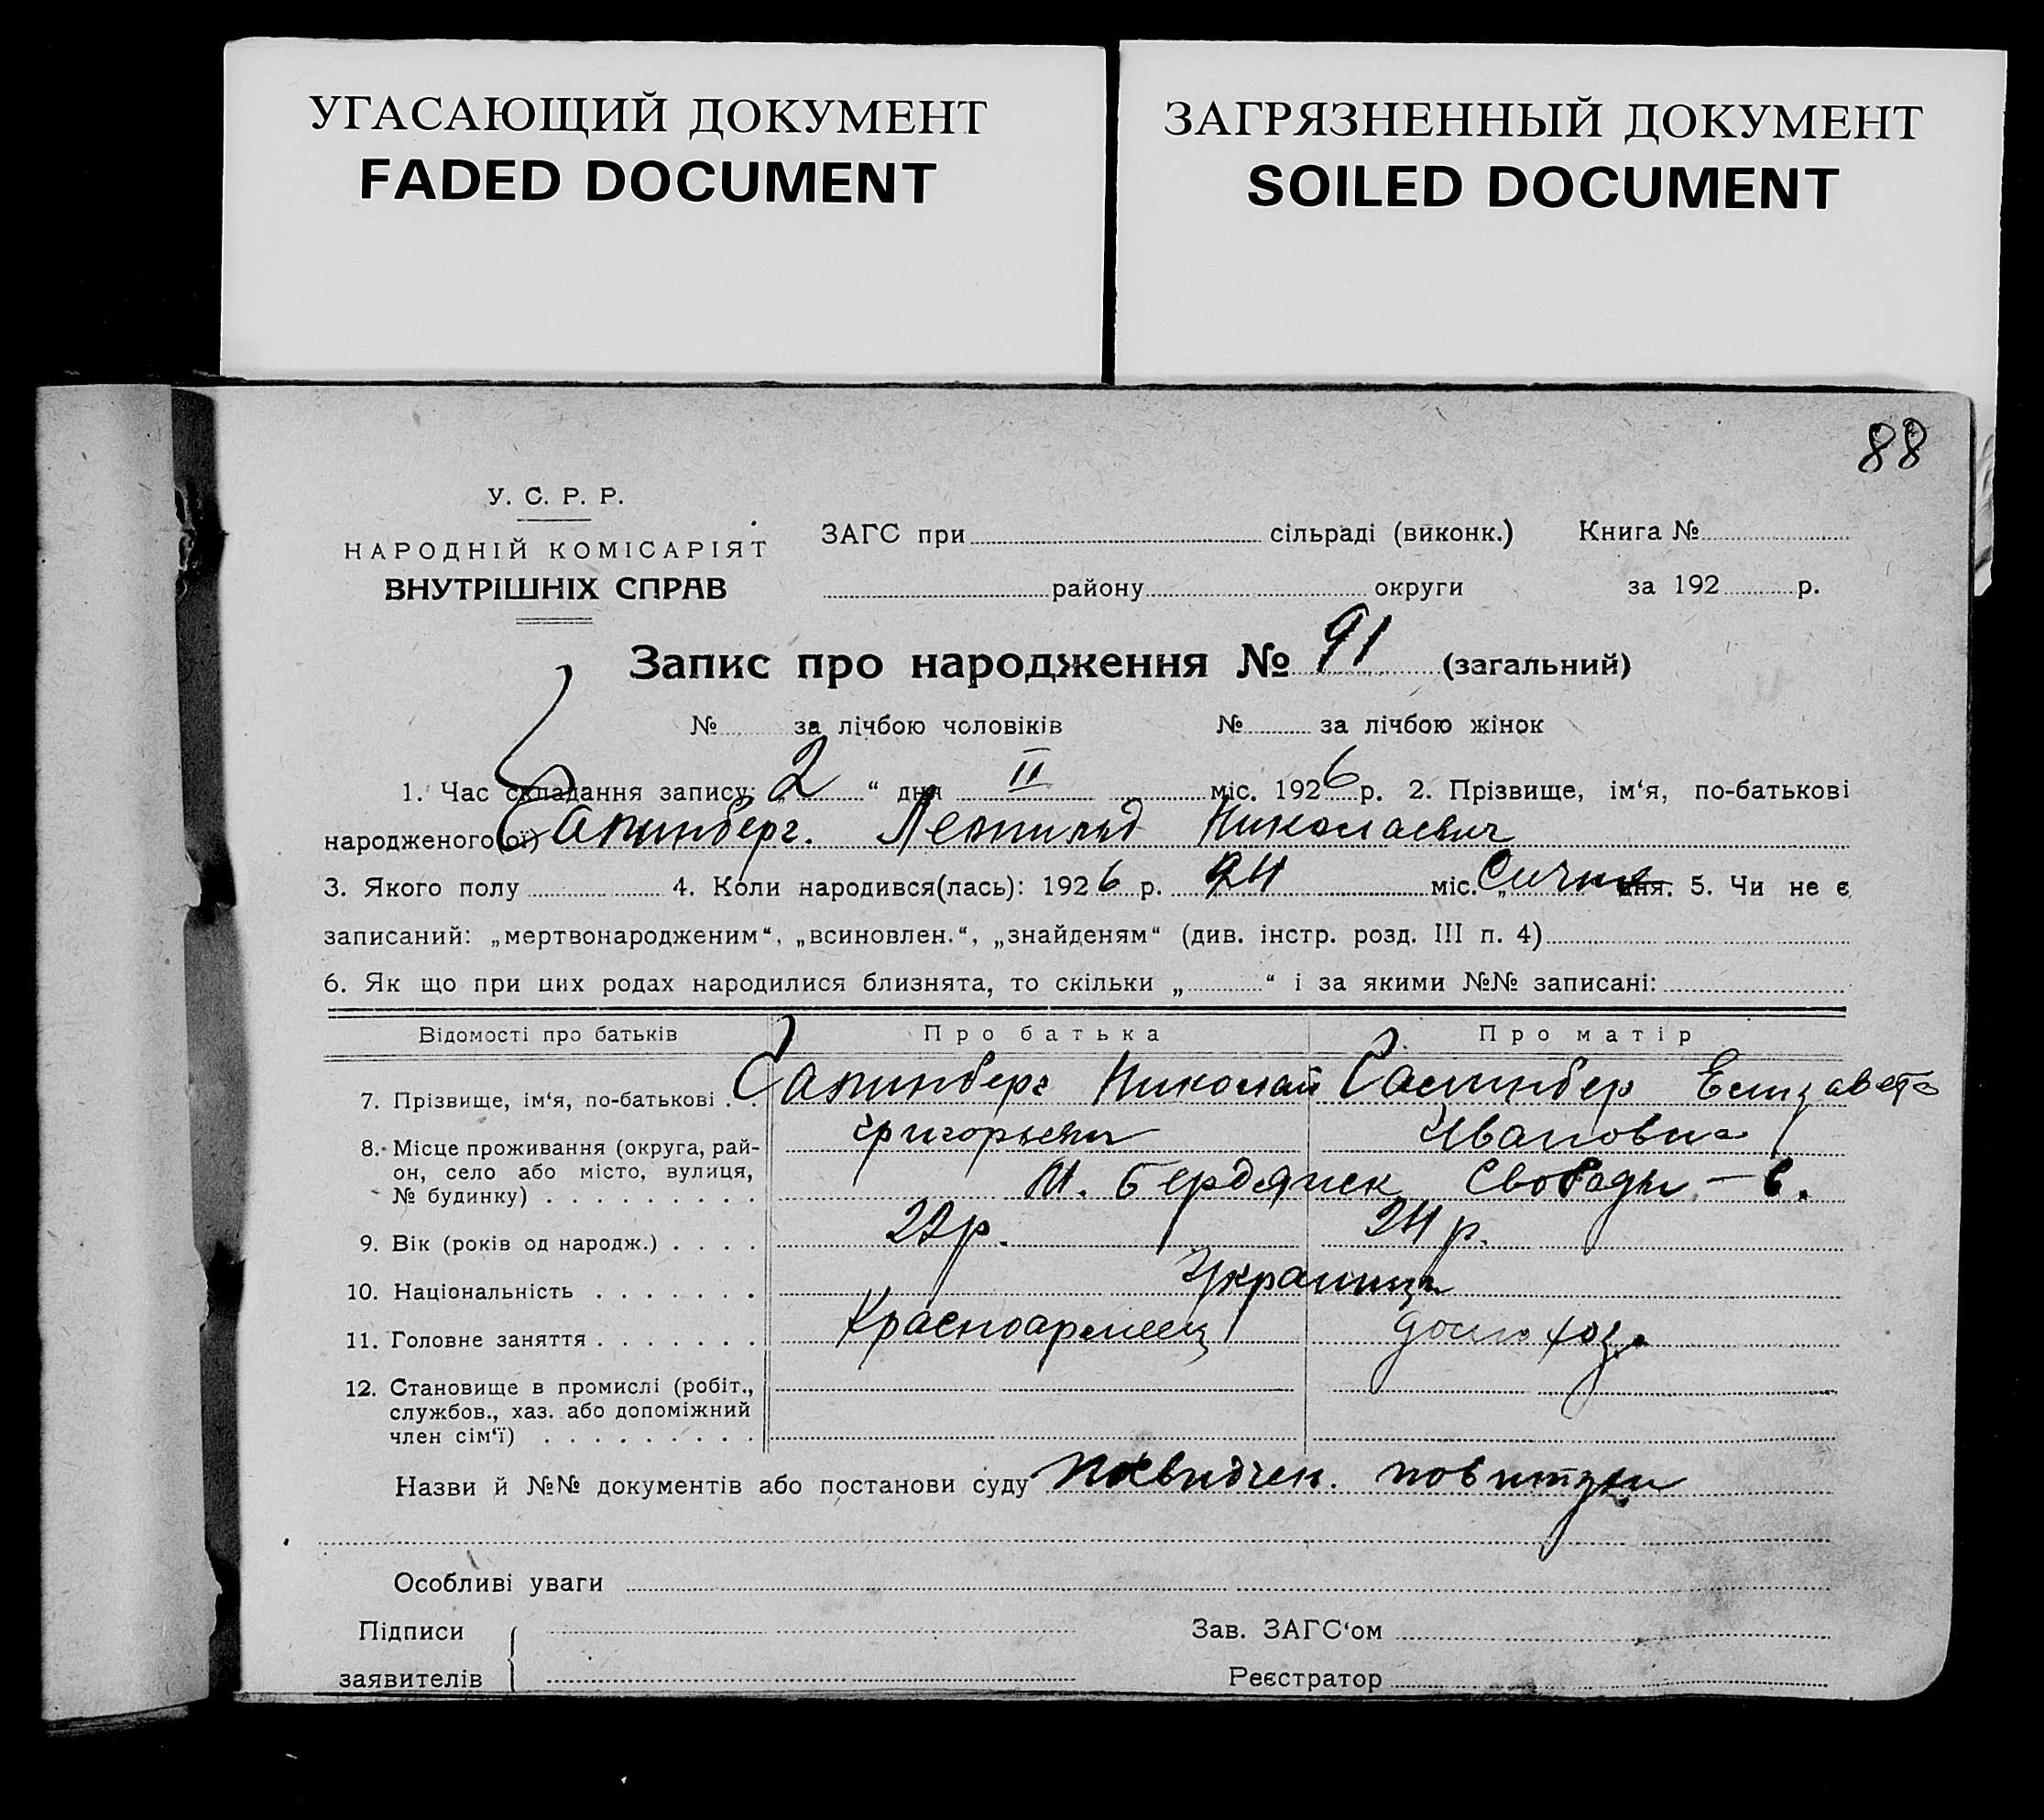 УГАСАЮЩИЙ ДОКУМЕНТ
FADED DOCUMENT
ЗАГРЯЗНЕННЫЙ ДОКУМЕНТ
SOILED DOCUMENT
88
У. С. Р. Р.
НАРОДНІЙ КОМІСАРІЯТ
ВНУТРІШНІХ СПРАВ
ЗАГС при сільраді (виконк.) Книга №
району округи за 192 р.
Запис про народження № 91 (загальний)
№ за лічбою чоловіків № за лічбою жінок
1. Час складання запису: „ 2 “ дня II міс. 1926 р. 2. Прізвище, ім‘я, по-батькові
народженого(ої) Николаевич
3. Якого полу 4. Коли народився(лась): 1926 р. 24 міс. „ Січня дня. 5. Чи не є
записаний: „мертвонародженим“, „всиновлен.“, „знайденям“ (див. інстр. розд. III п. 4)
6. Як що при цих родах народилися близнята, то скільки „ “ і за якими №№ записані:
Відомості про батьків Про батька Про матір
7. Прізвище, ім‘я, по-батькові . . Николай Елизавета
Григорьевич Ивановна
8. Місце проживання (округа, рай-
он, село або місто, вулиця,
№ будинку) . . . . . . . . . М. Бердянск Свободы – 6.
9. Вік (років од народж.) . . . . 22 р. 24 р.
10. Національність . . . . . . . Украинцы
11. Головне заняття . . . . . . . Красноармеец домохоз.
12. Становище в промислі (робіт.,
службов., хаз. або допоміжний
член сім‘ї) . . . . . . . . .
Назви й №№ документів або постанови суду посвидчен. повитухи
Особливі уваги
Підписи
заявителів
Зав. ЗАГС‘ом
Реєстратор